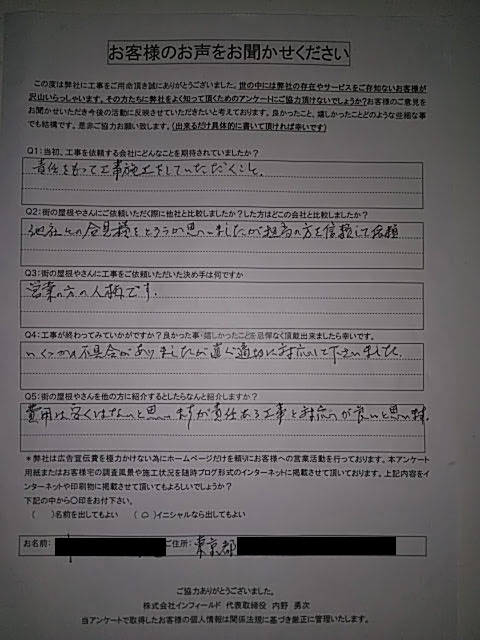 お客様のお声をお聞かせください
この度は弊社に工事をご用命頂き誠にありがとうございました。世の中には弊社の存在やサービスをご存知ないお客様が
沢山いらっしゃいます。その方たちに弊社をよく知って頂くためのアンケートにご協力頂けないでしょうか？お客様のご意見を
お聞かせいただき今後の活動に反映させていただきたいと考えております。良かったこと、嬉しかったことどのような些細な事
でも結構です。是非ご協力お願い致します。(出来るだけ具体的に書いて頂ければ幸いです)
Q1：当初、工事を依頼する会社にどんなことを期待されていましたか？
責任をもって工事施工をしていただくこと。
Q2：街の屋根やさんにご依頼いただく際に他社と比較しましたか？した方はどこの会社と比較しましたか？
他社との合見積をとろうか思いましたが担当の方を信頼して依頼
Q3：街の屋根やさんに工事をご依頼いただいた決め手は何ですか
営業の方の人柄です.
Q4：工事が終わってみていかがですか？良かった事・嬉しかったことを忌憚なく頂戴出来ましたら幸いです。
いくつか不具合がありましたが直ぐ適切に対応して下さいました.
Q5：街の屋根やさんを他の方に紹介するとしたらなんと紹介しますか？
費用は安くはないと思いますが責任ある工事と対応が良いと思います.
＊弊社は広告宣伝費を極力かけない為にホームページだけを頼りにお客様への営業活動を行っております。本アンケート
用紙またはお客様宅の調査風景や施工状況を随時ブログ形式のインターネットに掲載させて頂いております。上記内容をイ
ンターネットや印刷物に掲載させて頂いてもよろしいでしょうか？
下記の中から〇印をお付下さい。
( )名前を出してもよい (○)イニシャルなら出してもよい
お名前： ご住所： 東京都
ご協力ありがとうございました。
株式会社インフィールド 代表取締役 内野 勇次
当アンケートで取得したお客様の個人情報は関係法規に基づき厳正に管理いたします。